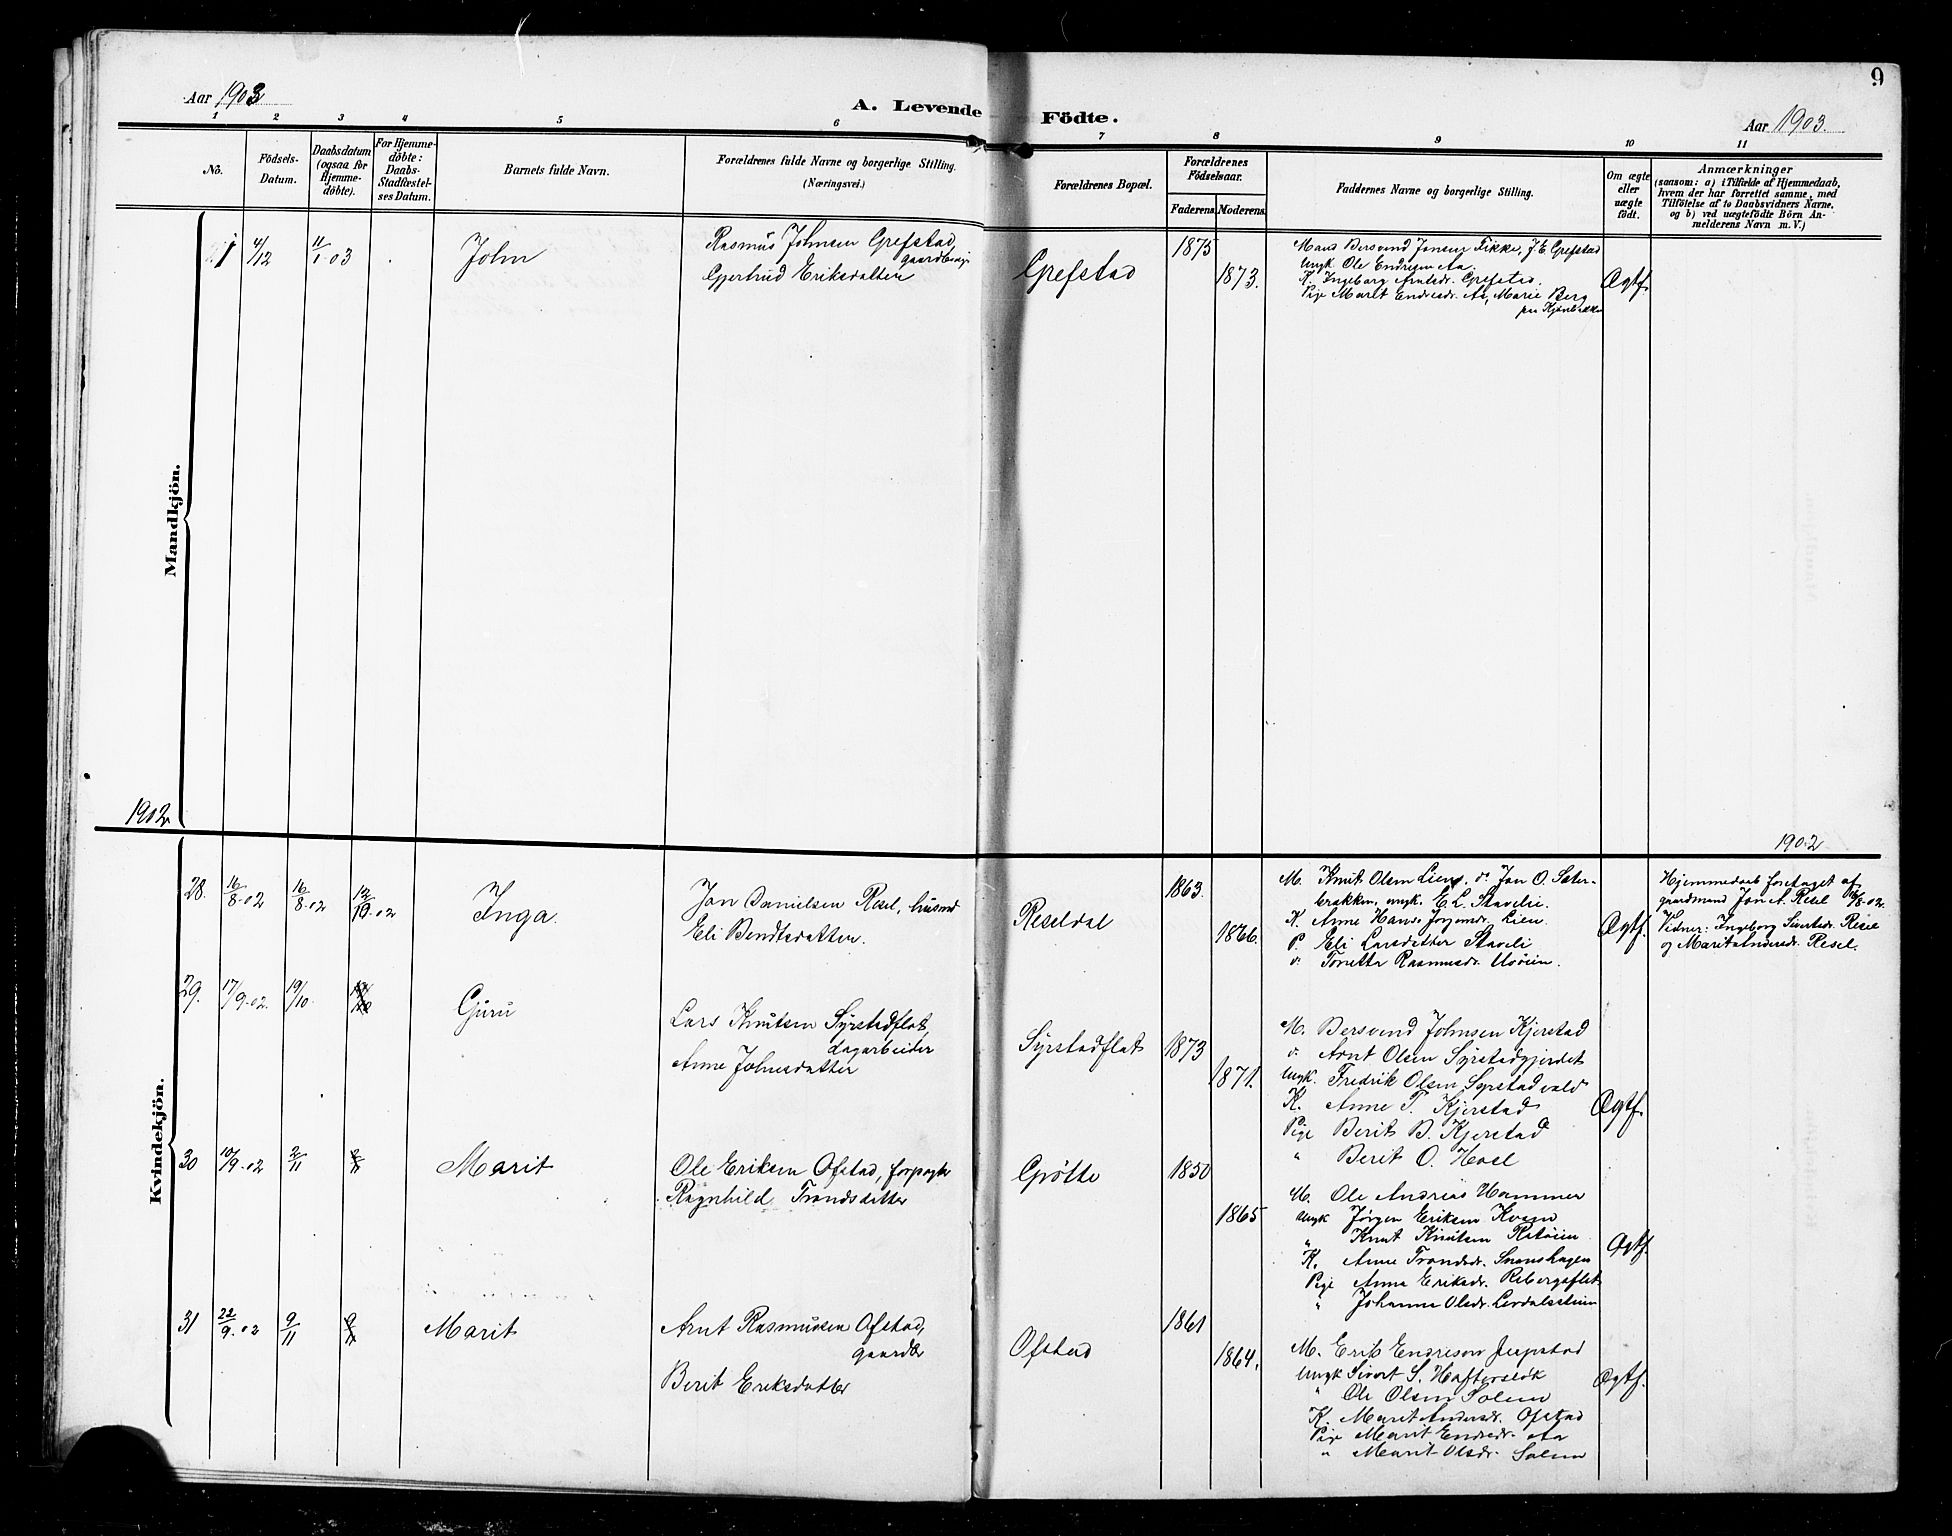 9
Aar 1903
A. Levende Födte.
Aar 1903.
1 2 3 4 5 6 7 8 9 10 11
No.
Födsels-
Datum.
Daabsdatum
(ogsaa for
Hjemme-
döbte).
For Hjemme-
döbte:
Daabs-
Stadfæstel-
ses Datum.
Barnets fulde Navn.
Forældrenes fulde Navne og borgerlige Stilling.
(Næringsvei.)
Forældrenes Bopæl.
Forældrenes
Födselsaar.
Faderens. Moderens.
Faddernes Navne og borgerlige Stilling.
Om ægte
eller
uægte
födt.
Anmærkninger
(saasom: a) i Tilfælde af Hjemmedaab,
hvem der har forrettet samme, med
Tilföielse af to Daabsvidners Navne,
og b) ved uægtefödte Börn An-
melderens Navn m. V.)
Mandkjön.
1
4/12
11/1 03
John
Rasmus Johnsen Grefstad,
gaardbrug.
Gjertrud Eriksdatter
Grefstad
1875
1873.
Mand Bersvend Jonsen Fikke, J. E. Grefstad
Ungk. Ole Endresen Aa.
K. Ingeborg Arntsdr. Grefstad.
Pige Marit Endresdr. Aa, Marie Berg
paa
Ægtf.
1902
1902
Kvindekjön.
28.
16/8.02
16/8.02
12/10.02
Inga.
Jon Danielsen Resel, husmd
Eli Bendtsdatter.
Reseldal
1863.
1866.
M. Knut Olsen Lien, do Jon O. Sæter-
brakken, ungk. E. L. Stavsli.
K. Anne Hans Jørgensdr. Lien.
P. Eli Larsdatter Stavsli
do Rasmusdr.
Ægtf.
Hjemmedaab foretaget af
gaardmand Jon A. Resel 16/8.02.
Vidner: Ingeborg Sivertsdr. Resel
og Marit Andersdr. Resel.
29.
17/9.02.
19/10.
Guru
Lars Knutsen Syrstadflat,
dagarbeider
Anne Johnsdatter
Syrstadflat
1873
1871.
M. Bersvend Johnsen Kjerstad
do Arnt Olsen Syrstadgjerdet
Ungk. Fredrik Olsen Syrstadvald
K. Anne T. Kjerstad
Pige Berit B. Kjerstad
" Berit O. Hoel
Ægtf.
30
10/9.02
2/11
Marit
Ole Eriksen Ofstad, forpagter
Ragnhild Trondsdatter
Grötte
1850
1865
M. Ole Andreas Hammer
Ungk Jörgen Eriksen Kvaen
" Knut Knutsen
K. Anne Trondsdr.
Pige Anna Eriksdr. Rebergsflet
" Johanna Olsdr.
Ægtf.
31
22/9.02
9/11
Marit
Arnt Rasmussen Ofstad,
gaardbr
Berit Eriksdatter
Ofstad
1861
1864.
M. Erik Endresen Jerpstad
Ungk Sivert S.
" Ole Olsen Solem
K. Marit Andersdr. Ofstad
Pige Marit Endresdr. Aa
" Marit Olsdr. Solem
Ægtf.